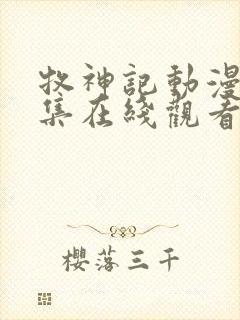 牧神記動漫
集在綫觀看
櫻落三千